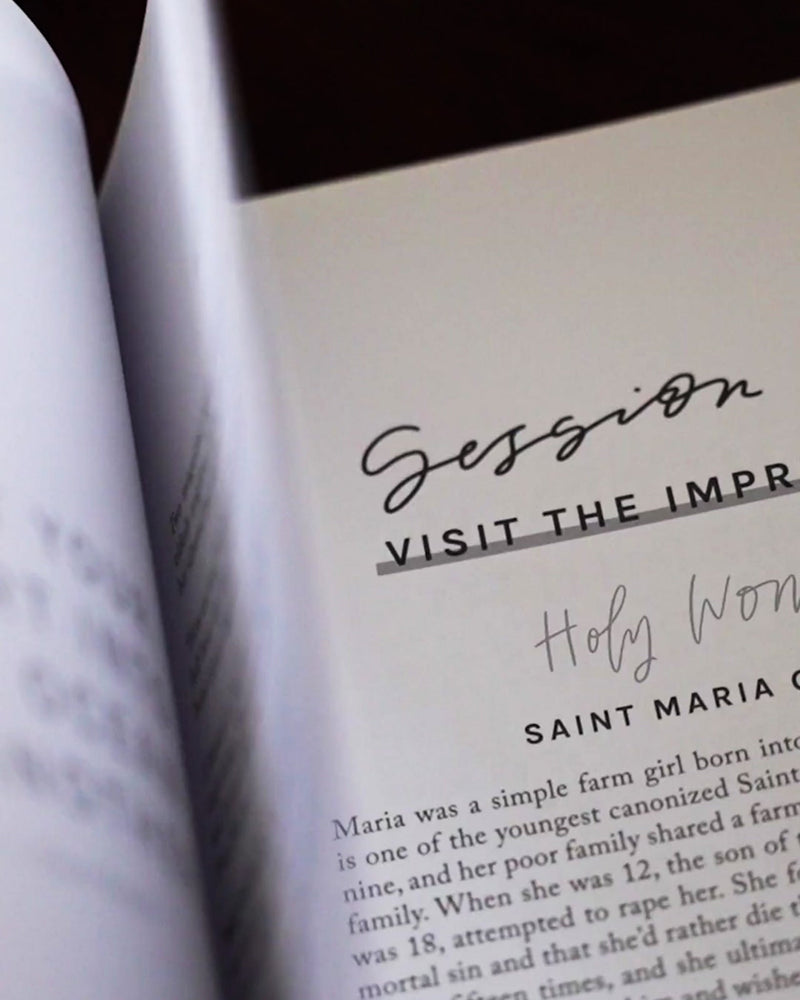 Session
VISIT THE IMPR
Holy Wom
SAINT MARIA G
Maria was a simple farm girl born into
is one of the youngest canonized Saint
nine, and her poor family shared a farm
family. When she was 12, the son of
was 18, attempted to rape her. She f
mortal sin and that she'd rather die t
times, and she ultima
and wishe